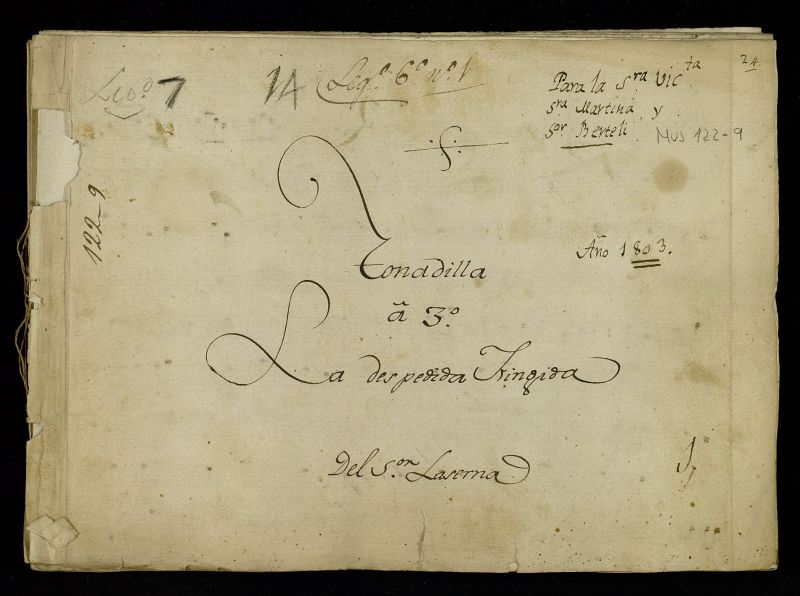 Leg.º 7
14
Leg.º 6.º n.º 1
24
Para la S.ra Vic.ta
S.ra Martina y
S.or Berteli
MUS 122-9
122-9
Tonadilla
Año 1803.
â 3.º
La despedida Fingida
Del S.or Laserna